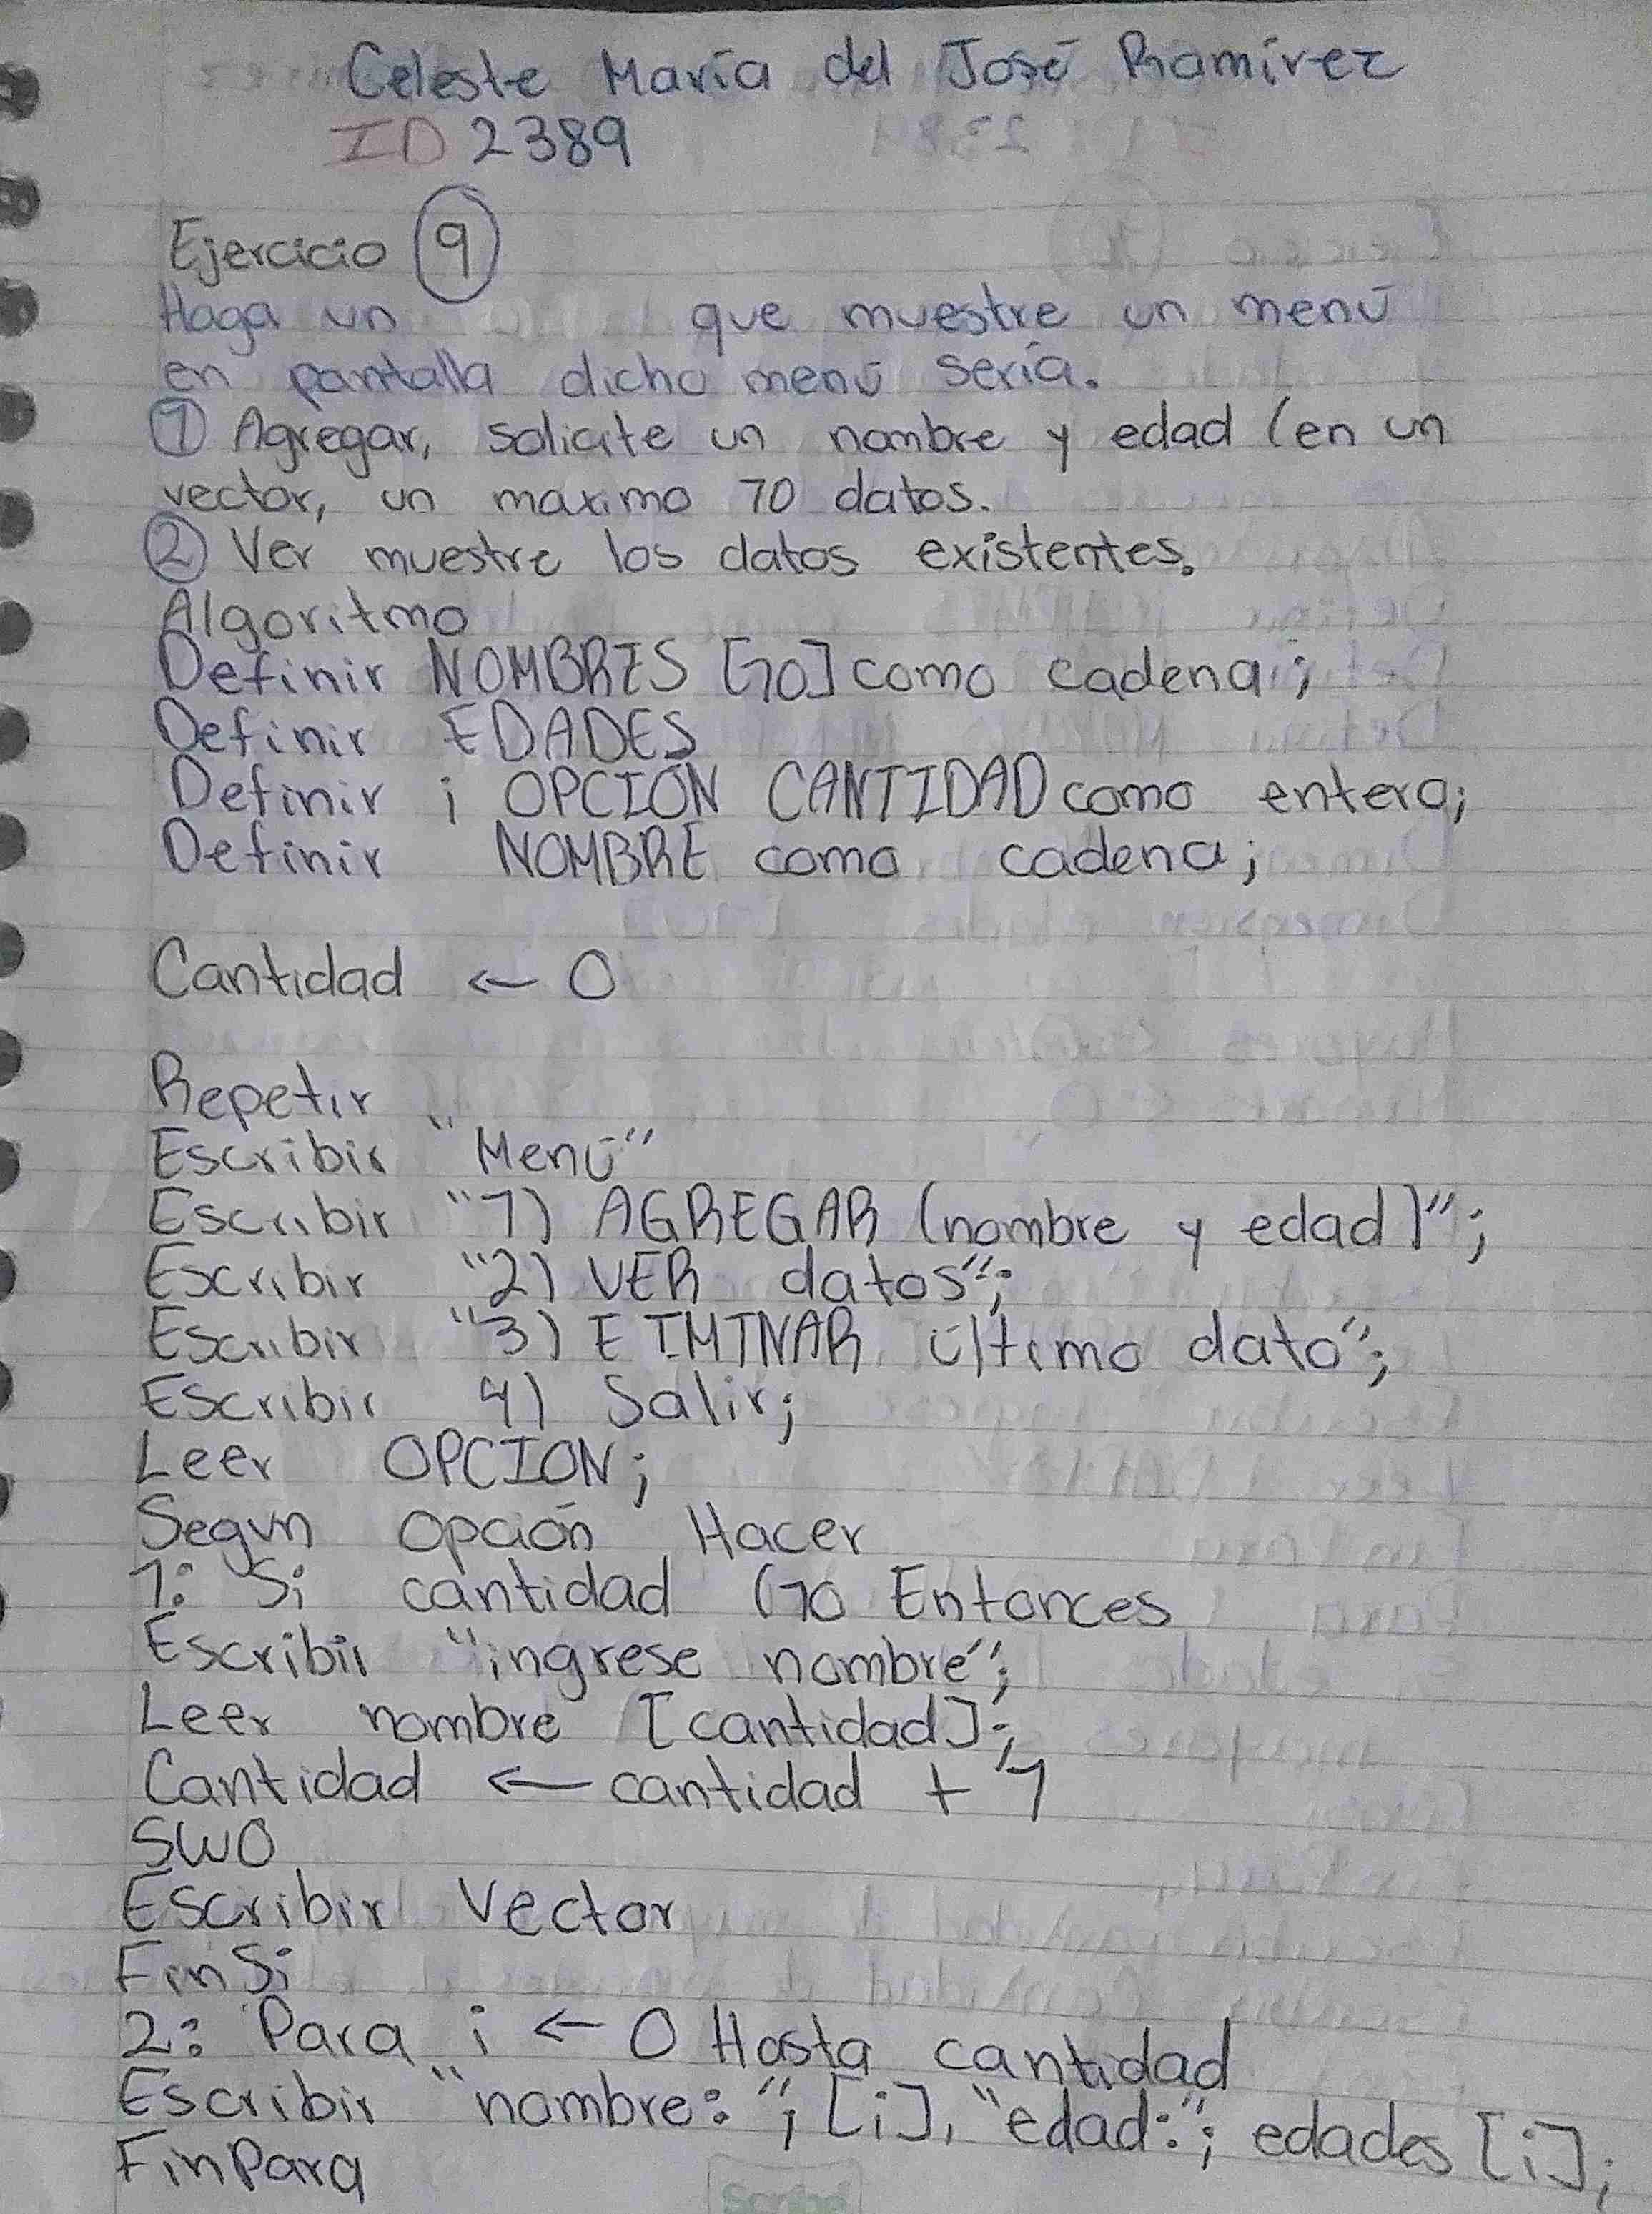 Celeste María del José Ramírez
ID 2389
Ejercicio 9
Haga un que muestre un menú
en pantalla dicho menú sería.
1 Agregar, solicite un nombre y edad (en un
vector, un maximo 70 datos.
2 Ver muestre los datos existentes.
Algoritmo
Definir NOMBRES [70] como cadena;
Definir EDADES
Definir i OPCIÓN CANTIDAD como entera;
Definir NOMBRE como cadena;
Cantidad ← 0
Repetir
Escribir "Menú"
Escribir "1) AGREGAR (nombre y edad)";
Escribir "2) VER datos";
Escribir "3) EIMINAR último dato";
Escribir 4) Salir;
Leer OPCION;
Segun opción Hacer
1: Si cantidad (70 Entonces
Escribir "ingrese nombre";
Leer nombre [cantidad];
Cantidad ← cantidad + 1
SWO
Escribir Vector
FinSi
2: Para i ← 0 Hasta cantidad
Escribir "nombre:"; [i], "edad:"; edades [i];
FinPara
Scribe